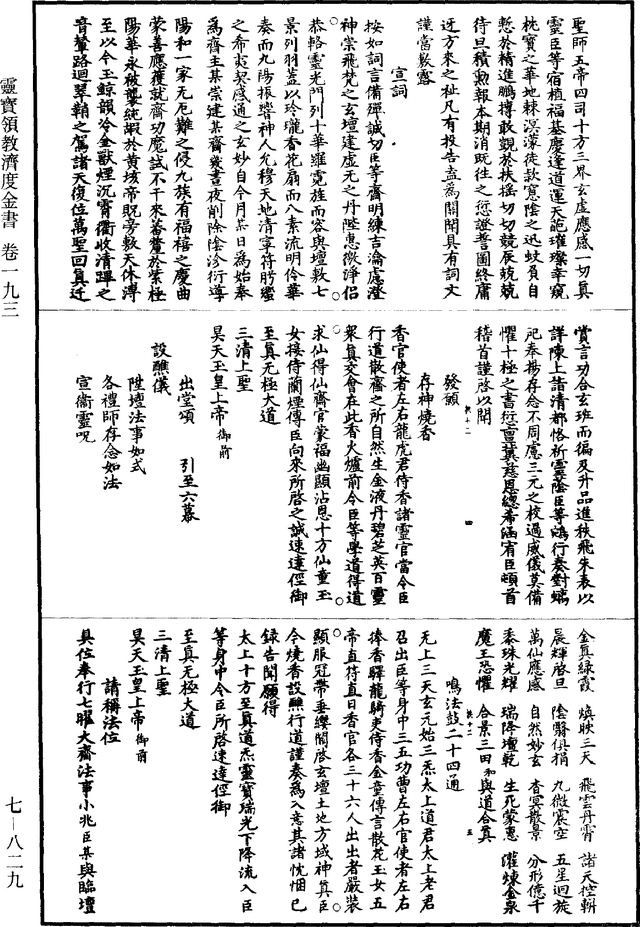 靈寶領教濟度金書 卷一九三
七-八二九
聖師五帝四司十方三界玄虛應感一切真
靈臣等宿植福基慶逢道運天葩璀璨幸窺
枕寶之華地棘溟濛徒款寬陰之迅蚊負自
慙於精進鵬摶敢覬於扶搖切切競辰兢兢
待旦積勲報本期消既往之愆證誓圖終庸
迓方來之祉凡有投告盍為關聞具有詞文
謹當敷露
宣詞
按如詞言備殫誠切臣等齋明練吉瀹慮澄
神崇飛梵之玄壇建虛元之丹陛惠微淨侶
恭輅靈光門列十華雖霓旌而容與壇敷七
景列羽蓋以玲瓏香花扇而八素流明伶華
奏而九陽振響神人允穆天地清寧符肹蠁
之希夷契感通之玄妙自今月某日為始奉
為齋主某崇建某齋幾晝夜削除陰沴衍導
陽和一家无厄難之侵九族有福禧之慶曲
蒙善應獲就齋功魔試不干來菴鬱於紫極
陽華永被襲純嘏於黃垓帝既旁敷天休溥
至以今玉鯨韻冷金獸煙沉霄衢收清蹕之
音輦路迴翠鞘之駕諸天復位萬聖回真近
賞言功合玄班而徧及升品進秩飛朱表以
詳陳上請清都恪祈靈蔭臣等鴻行奏對螭
戺奉揚存念不周慮三元之校過威儀莫備
懼十極之書愆亶冀慈恩總希涵宥臣頓首
稽首謹啓以聞
發願
四
存神燒香
香官使者左右龍虎君侍香諸靈官當令臣
行道散齋之所自然生金液丹碧芝英百靈
衆真交會在此香火爐前令臣等學道得道
求仙得仙齋官蒙福幽顯沾恩十方仙童玉
女接侍蘭煙傳臣向來所啓之誠速達徑御
至真无極大道
三清上聖
昊天玉皇上帝御前
出堂頌 引至六幕
設醮儀
陞壇法事如式
各禮師存念如法
宣衞靈呪
金真綠霞 煥映三天 飛雲丹霄 諸天控軿
晨輝啓旦 陰翳俱捐 九微震空 五星迴旋
萬仙應感 自然妙玄 杳冥散景 分形億千
黍珠光耀 瑞降壇乾 生死蒙惠 濯煉金泉
魔王恐懼 合景三田 和與道合真
五
鳴法鼓二十四通
无上三天玄元始三炁太上道君太上老君
召出臣等身中三五功曹左右官使者左右
捧香驛龍騎吏侍香金童傳言散花玉女五
帝直符直日香官各三十六人出出者嚴裝
顯服冠帶垂纓關啓玄壇土地方域神真臣
今燒香設醮行道謹奏為入意其諸忱悃已
録告聞願得
太上十方至真道炁靈寶瑞光下降流入臣
等身中令臣所啓速達徑御
至真无極大道
三清上聖
昊天玉皇上帝御前
請稱法位
具位奉行七曜大齋法事小兆臣某與臨壇